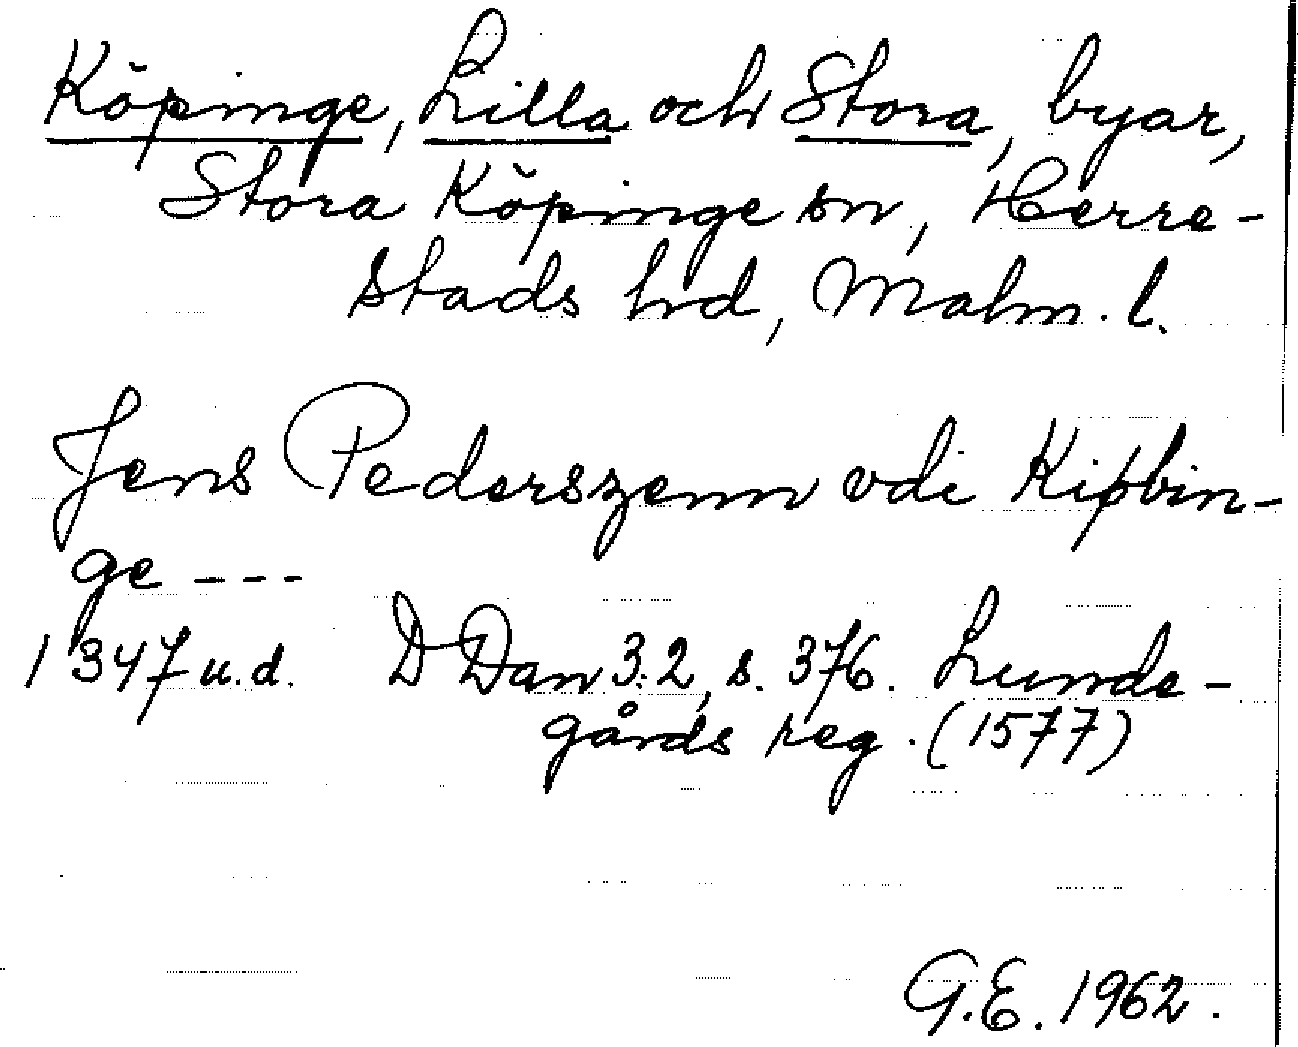 Köpinge, Lilla och Stora, byar,
Stora Köpinge sn, Herre-
stads hd, Malm. l.
Jens Pederszenn vdi Kipbin-
ge ---
1347 u.d. D Dan 3:2, s. 376. Lunde-
gårds reg. (1577)
G.E. 1962.